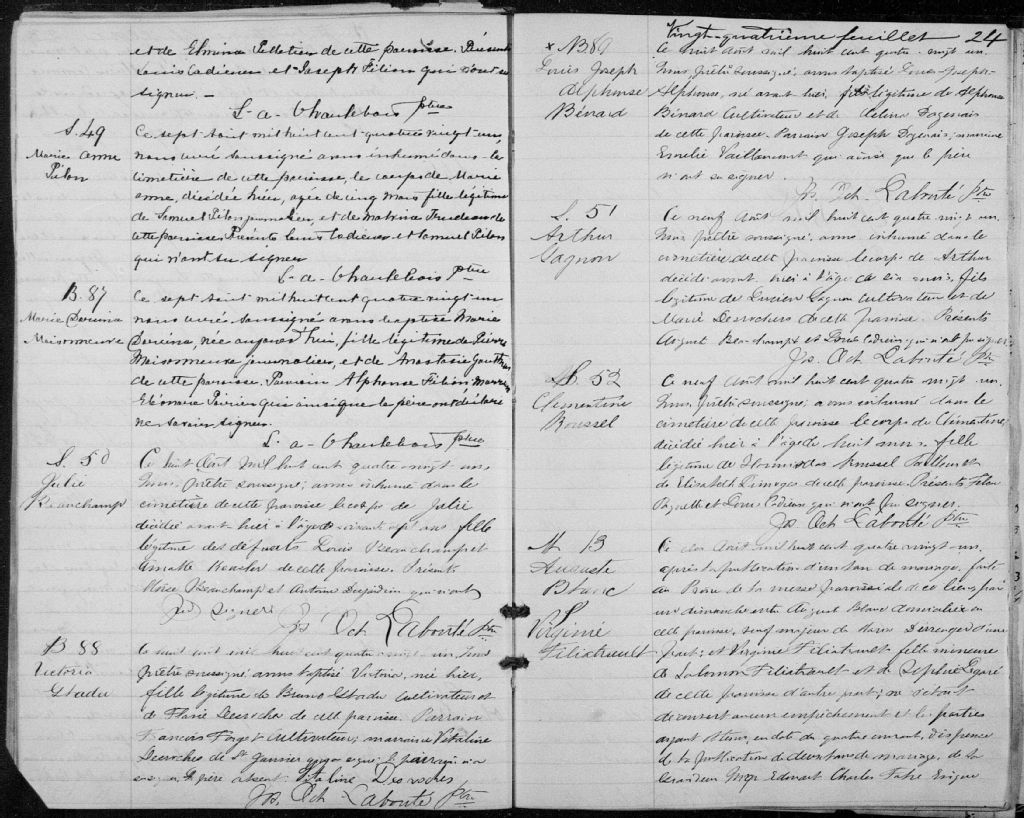 et de Elmina Pelletier de cette paroisse. Présents
Louis Cadieux et Joseph Filion qui n'ont su
signer. —
L. a. Charlebois ptre
S. 49
Marie anne
Pilon
Ce sept aout mil huit cent quatre vingt un,
nous curé soussigné avons inhumé dans le
cimetière de cette paroisse, le corps de Marie
anne, décédée hier, agée de cinq mois fille légitime
de Samuel Pilon journalier, et de Mathilda Trudeau de
cette paroisse. Présents Louis Cadieux et Samuel Pilon
qui n'ont su signer
L. a. Charlebois ptre
B. 87
Marie
Maisonneuve
Ce sept aout mil huit cent quatre vingt un
nous curé soussigné avons baptisé Marie
née aujourd'hui, fille légitime de Pierre
Maisonneuve journalier, et de Anastasie Gauthier
de cette paroisse. Parrain Alphonse Filion Marraine
Eléonore Poirier qui ainsi que le père ont déclaré
ne savoir signer.
L. a. Charlebois ptre
S. 50
Julie
Beauchamp
Ce huit Aout mil huit cent quatre vingt un,
nous prêtre soussigné, avons inhumé dans le
cimetière de cette paroisse le corps de Julie
décédée avant hier à l'âge de soixante sept ans fille
légitime des défunts Louis Beauchamp et
de cette paroisse. Présents
Moïse Beauchamp et Antoine Desjardins qui n'ont
pu signer
Js. Oct. Labonté Ptre
B 88
Victoria
Ce huit août mil huit cent quatre vingt un nous
prêtre soussigné avons baptisé Victoria, née hier,
fille légitime de Bruno cultivateur et
de Flavie Desroches de cette paroisse. Parrain
François Forget cultivateur; marraine Vitaline
Desroches de St Janvier qui a signé; le parrain n'a
su signer, le père absent. Vitaline Desroches
Js. Oct. Labonté Ptre
Vingt-quatrième feuillet 24
x B. 89
Louis Joseph
Alphonse
Bénard
Ce huit Août mil huit cent quatre vingt un
Nous, prêtre soussigné, avons baptisé Louis-Joseph-
Alphonse, né avant hier, fils légitime de Alphonse
Bénard Cultivateur et de Delina Dagenais
de cette paroisse. Parrain Joseph Dagenais; marraine
Emélie Vaillancourt qui ainsi que le père
n'ont su signer.
Js. Oct. Labonté Ptre
S. 51
Arthur
Gagnon
Ce neuf Août mil huit cent quatre vingt un
Nous prêtre soussigné, avons inhumé dans le
cimetière de cette paroisse le corps de Arthur
décédé avant hier à l'âge de six mois, fils
légitime de Lucien Gagnon cultivateur et de
Marie Desrochers de cette paroisse. Présents
August Beauchamp et Louis Cadieux qui n'ont pu signer
Js. Oct. Labonté Ptre
S. 52
Clementine
Roussel
Ce neuf Août mil huit cent quatre vingt un.
Nous, prêtre soussigné, avons inhumé dans le
cimetière de cette paroisse le corps de Clémentine,
décédée hier à l'âge de huit mois, fille
légitime de Hormisdas Roussel et
de Elizabeth Limoges de cette paroisse. Présents
Paquette et Louis Cadieux qui n'ont pu signer.
Js. Oct. Labonté Ptre
M 13
Auguste
Blanc
&
Virginie
Filiatrault
Ce dix Août mil huit cent quatre vingt un,
après la publication d'un ban de mariage, faite
au Prône de la messe paroissiale de ce lieu
un dimanche entre August Blanc domicilié en
cette paroisse, veuf majeur de Marie d'une
part; et Virginie Filiatrault fille mineure
de Salomon Filiatrault et de Sophie Legaré
de cette paroisse d'autre part; ne s'étant
découvert aucun empêchement et les parties
ayant obtenu, en date du quatre courant, dispense
de la publication de deux bans de mariage, de Sa
Grandeur Mgr Edouard Charles Fabre Evêque